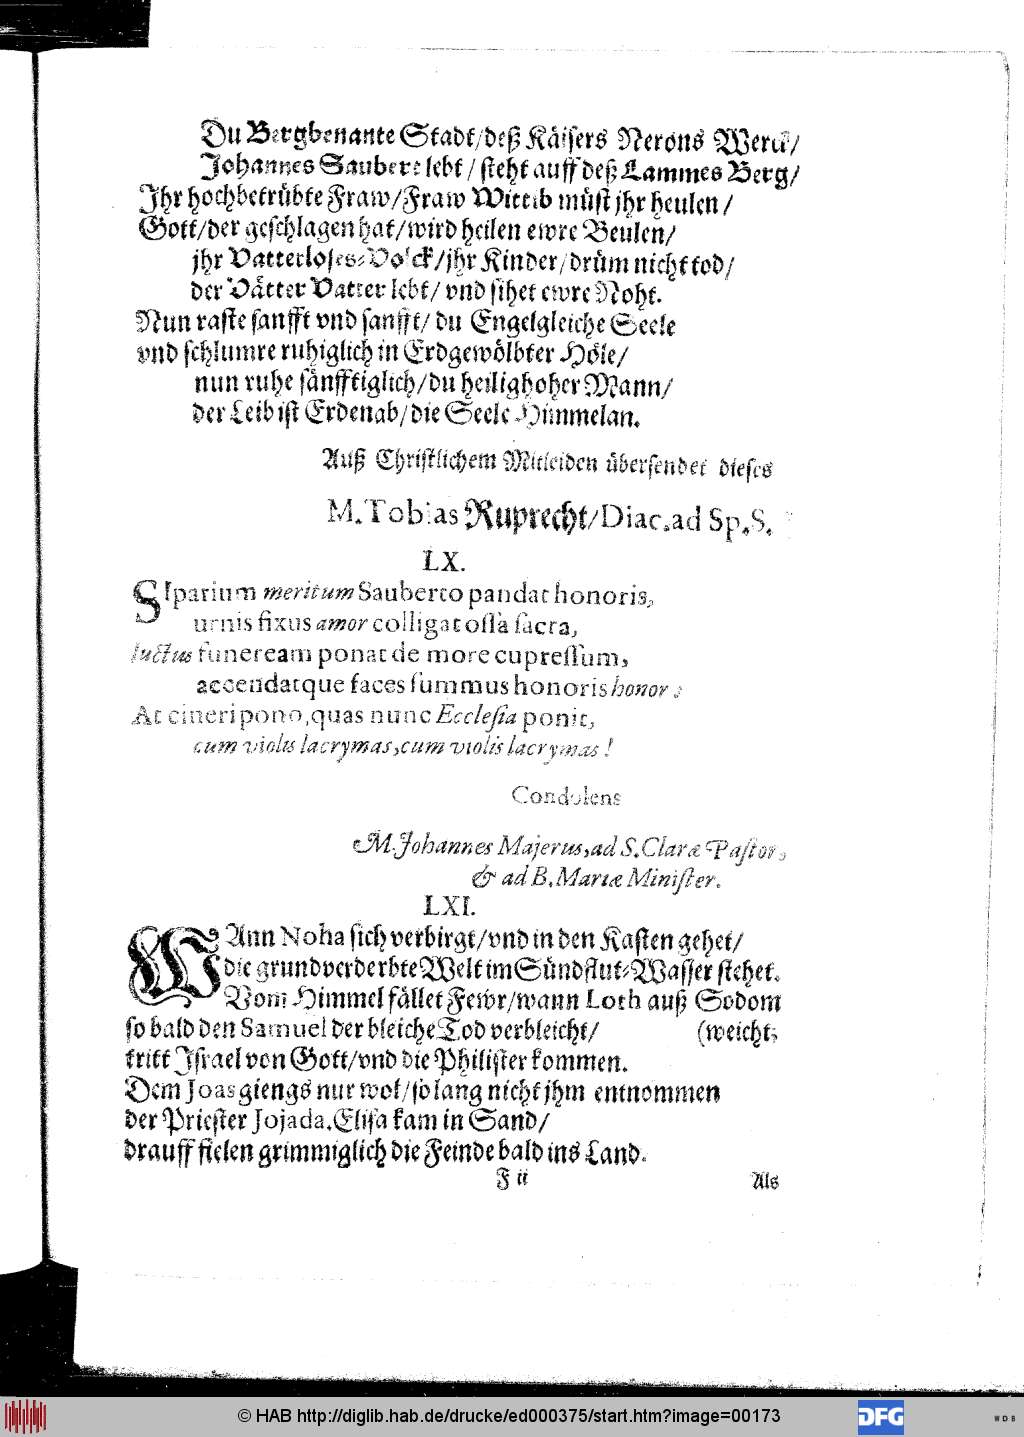 Du Bergbenante Stadt/deß Käisers Nerons Werck/
Johannes Saubert lebt / steht auff deß Lammes Berg/
Ihr hochbetrübte Fraw/Fraw Wittib müst jhr heulen /
Gott/der geschlagen hat/wird heilen ewre Beulen/
jhr Vatterloses-Volck/jhr Kinder/drüm nicht tod/
der Vätter Vatter lebt/ vnd sihet ewre Noht.
Nun raste sanfft vnd sanfft/ du Engelgleiche Seele
vnd schlumre ruhiglich in Erdgewölbter Höle/
nun ruhe sänfftiglich/du heilighoher Mann/
der Leib ist Erdenab/die Seele Himmelan.
Auß Christlichem Mitleiden übersendet dieses
M.Tobias Ruprecht/Diac.ad Sp.S.
LX.
SIparium meritum Sauberto pandat honoris,
urnis fixus amor colligat ossa sacra,
luctus funeream ponat de more cupressum,
accendatque faces summus honoris honor :
At cineri pono,quas nunc Ecclesia ponit,
cum violis lacrymas,cum violis lacrymas !
Condolens
M.Johannes Majerus,ad S.Claræ Pastor,
& ad B.Mariæ Minister.
LXI.
WAnn Noha sich verbirgt/vnd in den Kasten gehet/
die grundverderbte Welt im Sündflut-Wasser stehet.
Vom Himmel fället Fewr/wann Loth auß Sodom
so bald den Samuel der bleiche Tod verbleicht/ (weicht;
tritt Israel von Gott/vnd die Philister kommen.
Dem Joas giengs nur wol/so lang nicht jhm entnommen
der Priester Jojada.Elisa kam in Sand/
drauff fielen grimmiglich die Feinde bald ins Land.
F ii Als
© HAB http://diglib.hab.de/drucke/ed000375/start.htm?image=00173
DFG
WDB